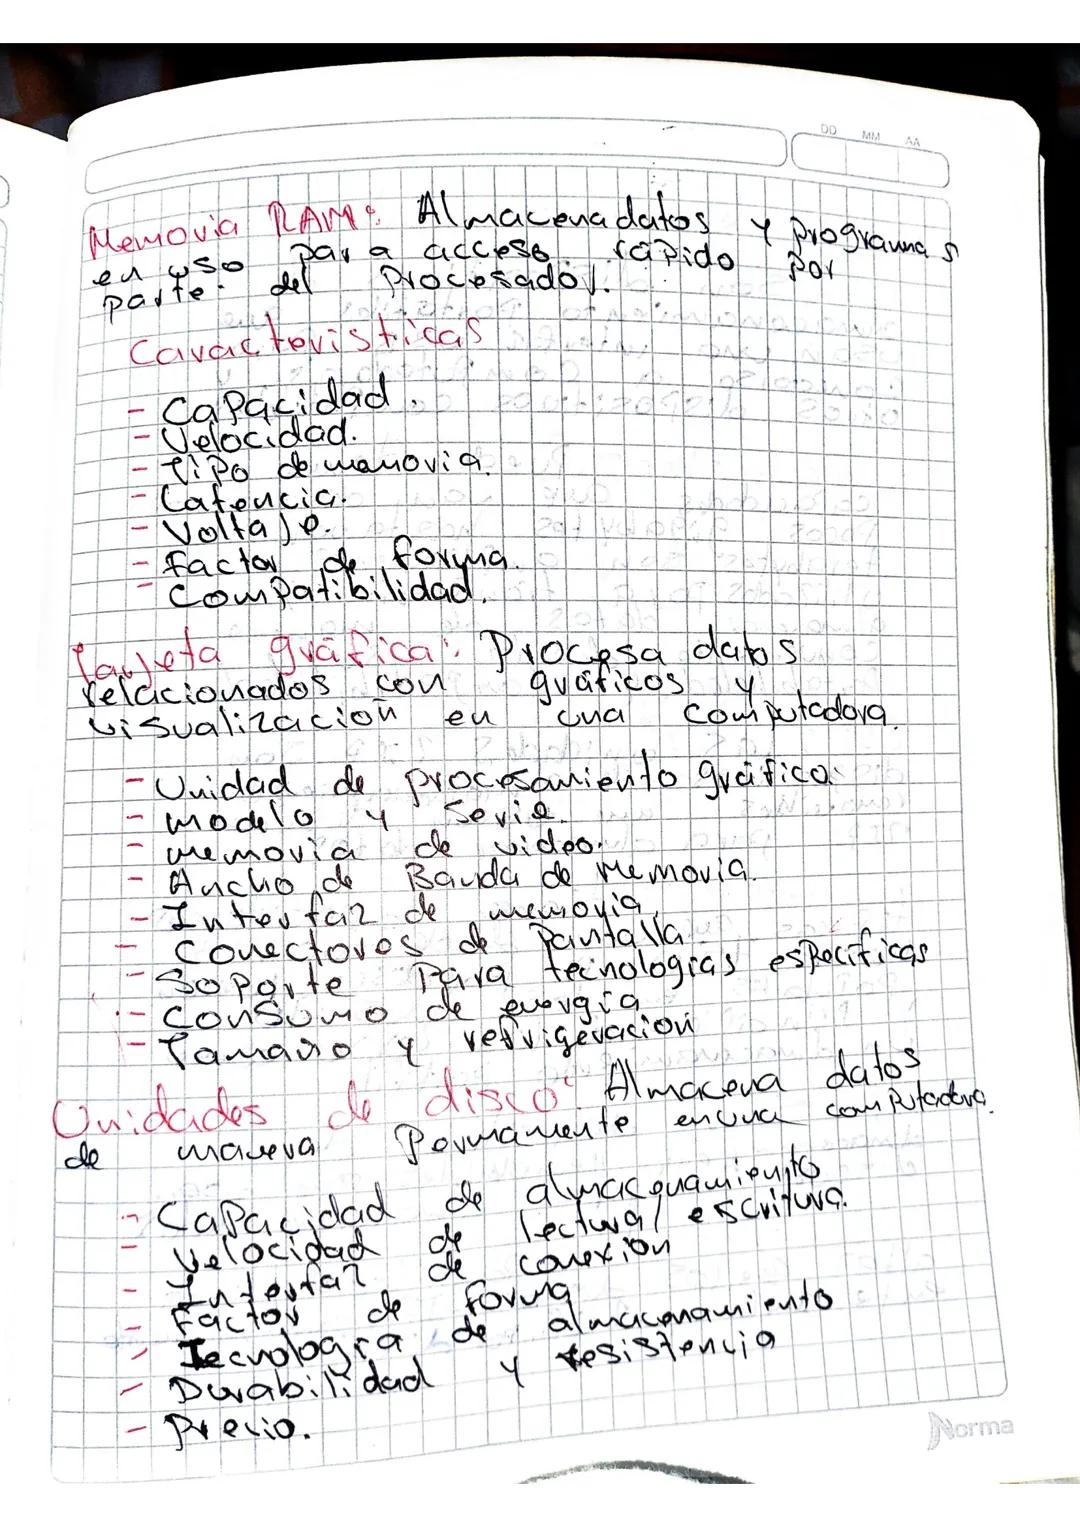 DD MM AA
Memoria RAM: Almacena datos y programas
en uso para acceso rápido por
parte del procesador.
Caracteristicas
- Capacidad.
- Velocidad.
- Tipo de memoria.
- Latencia.
- Voltaje.
- Factor de forma.
- Compatibilidad.
Tarjeta gráfica: Procesa datos
relacionados con gráficos y
visualización en una computadora.
- Unidad de procesamiento gráfico.
- modelo y serie.
- memoria de video.
- Ancho de Banda de Memoria.
- Interfaz de memoria.
- Conectores de pantalla
- Soporte para tecnologías específicas
- Consumo de energía
- Tamaño y refrigeración
Unidades de disco: Almacena datos
de manera permanente en una computadora.
- Capacidad de almacenamiento
- Velocidad de lectura/escritura.
- Interfaz de conexión
- Factor de forma
- Tecnología de almacenamiento
- Durabilidad y resistencia
- Precio.
Norma